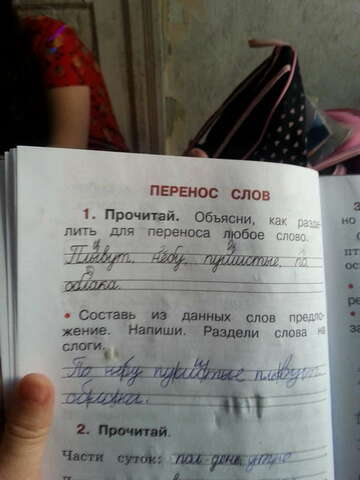 ПЕРЕНОС СЛОВ
1. Прочитай. Объясни, как разде-
лить для переноса любое слово.
Плывут, небу, пушистые, по
облака.
• Составь из данных слов предло-
жение. Напиши. Раздели слова на
слоги.
По небу пушистые плывут
облака.
2. Прочитай.
Части суток: пол-день, утро